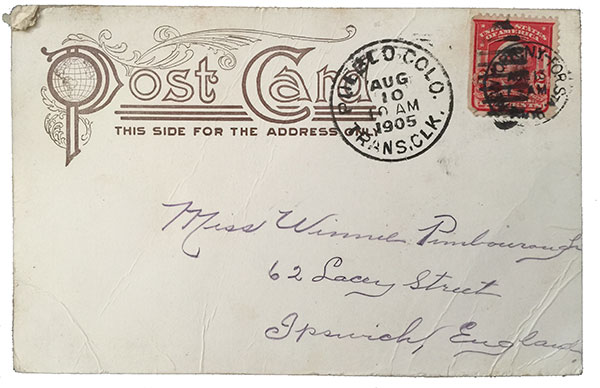 Post Card
THIS SIDE FOR THE ADDRESS ONLY
PUEBLO, COLO.
AUG
10
10 AM
1905
TRANS. CLK.
UNITED STATES
OF AMERICA
Miss Winnie
62 Lacey Street
Ipswich, England